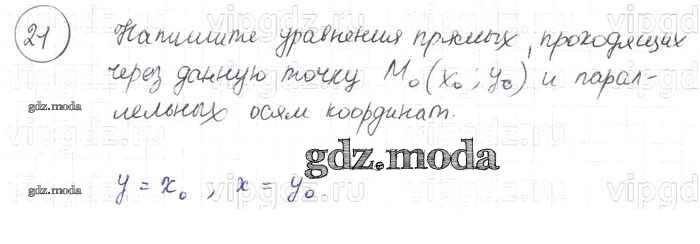 21 Напишите уравнения прямых, проходящих
через данную точку M₀(x₀; y₀) и парал-
лельных осям координат.
gdz.moda
gdz.moda
y = x₀ ; x = y₀.
gdz.moda